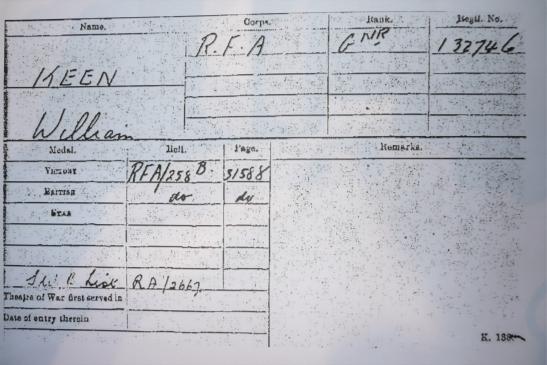 Name. Corps. Rank. Regtl. No.
R.F.A GNR 132746
KEEN
William
Medal. Roll. Page. Remarks.
VICTORY RFA/258 B. 31588
BRITISH do do
STAR
List RA/2667
Theatre of War first served in
Date of entry therein